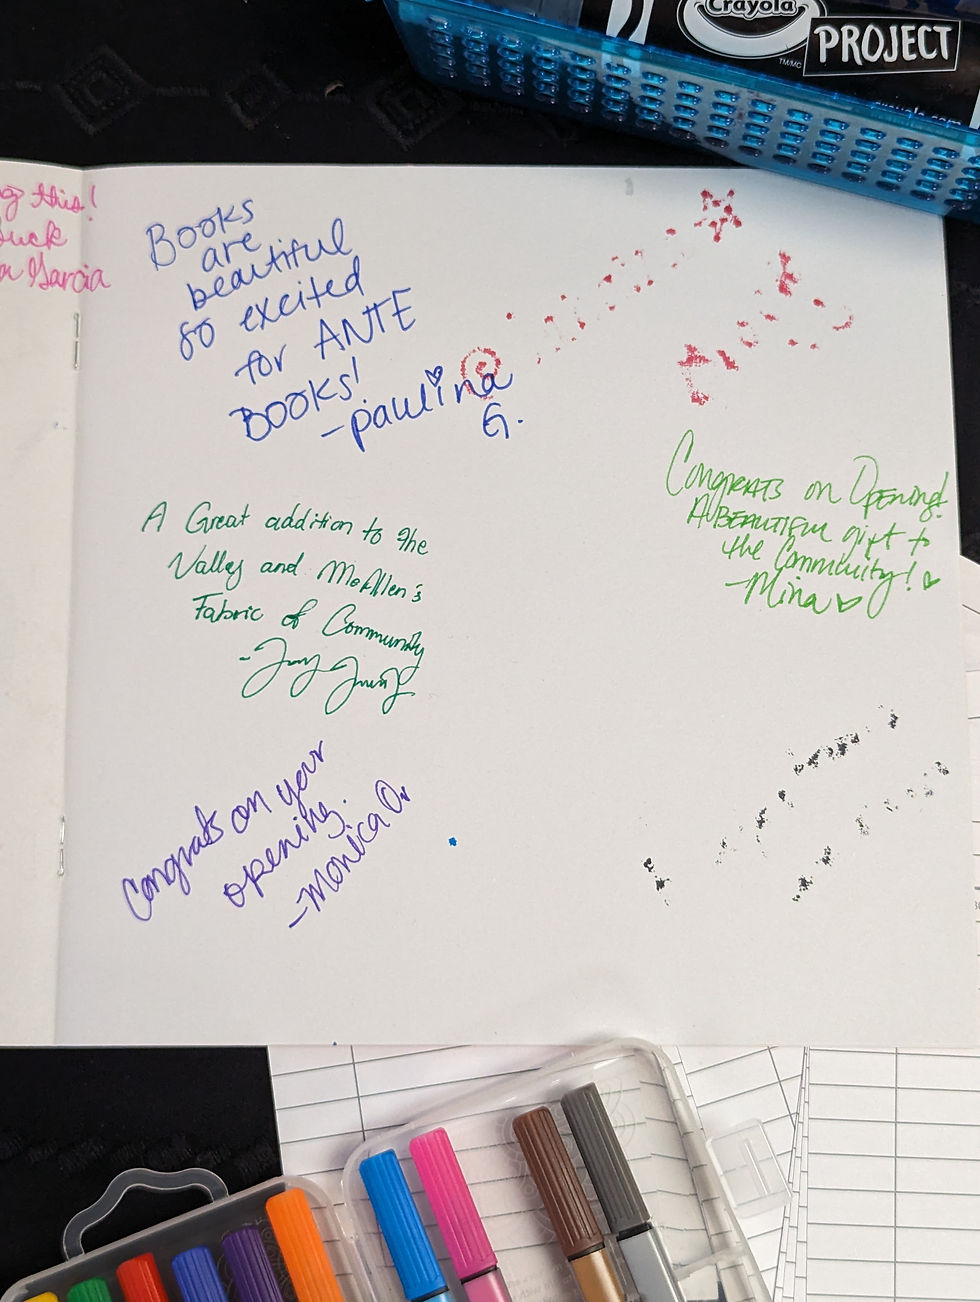 Crayola
PROJECT
TM/MC
crayola.com
g this!
Garcia
Books
are
beautiful
so excited
for ANTE
BOOKS!
-paulina
G.
Congrats on Opening!
A BEAUTIFUL gift to
the Community!
-Mina
A Great addition to the
Valley and McAllen's
Fabric of Community
congrats on your
opening.
-Monica